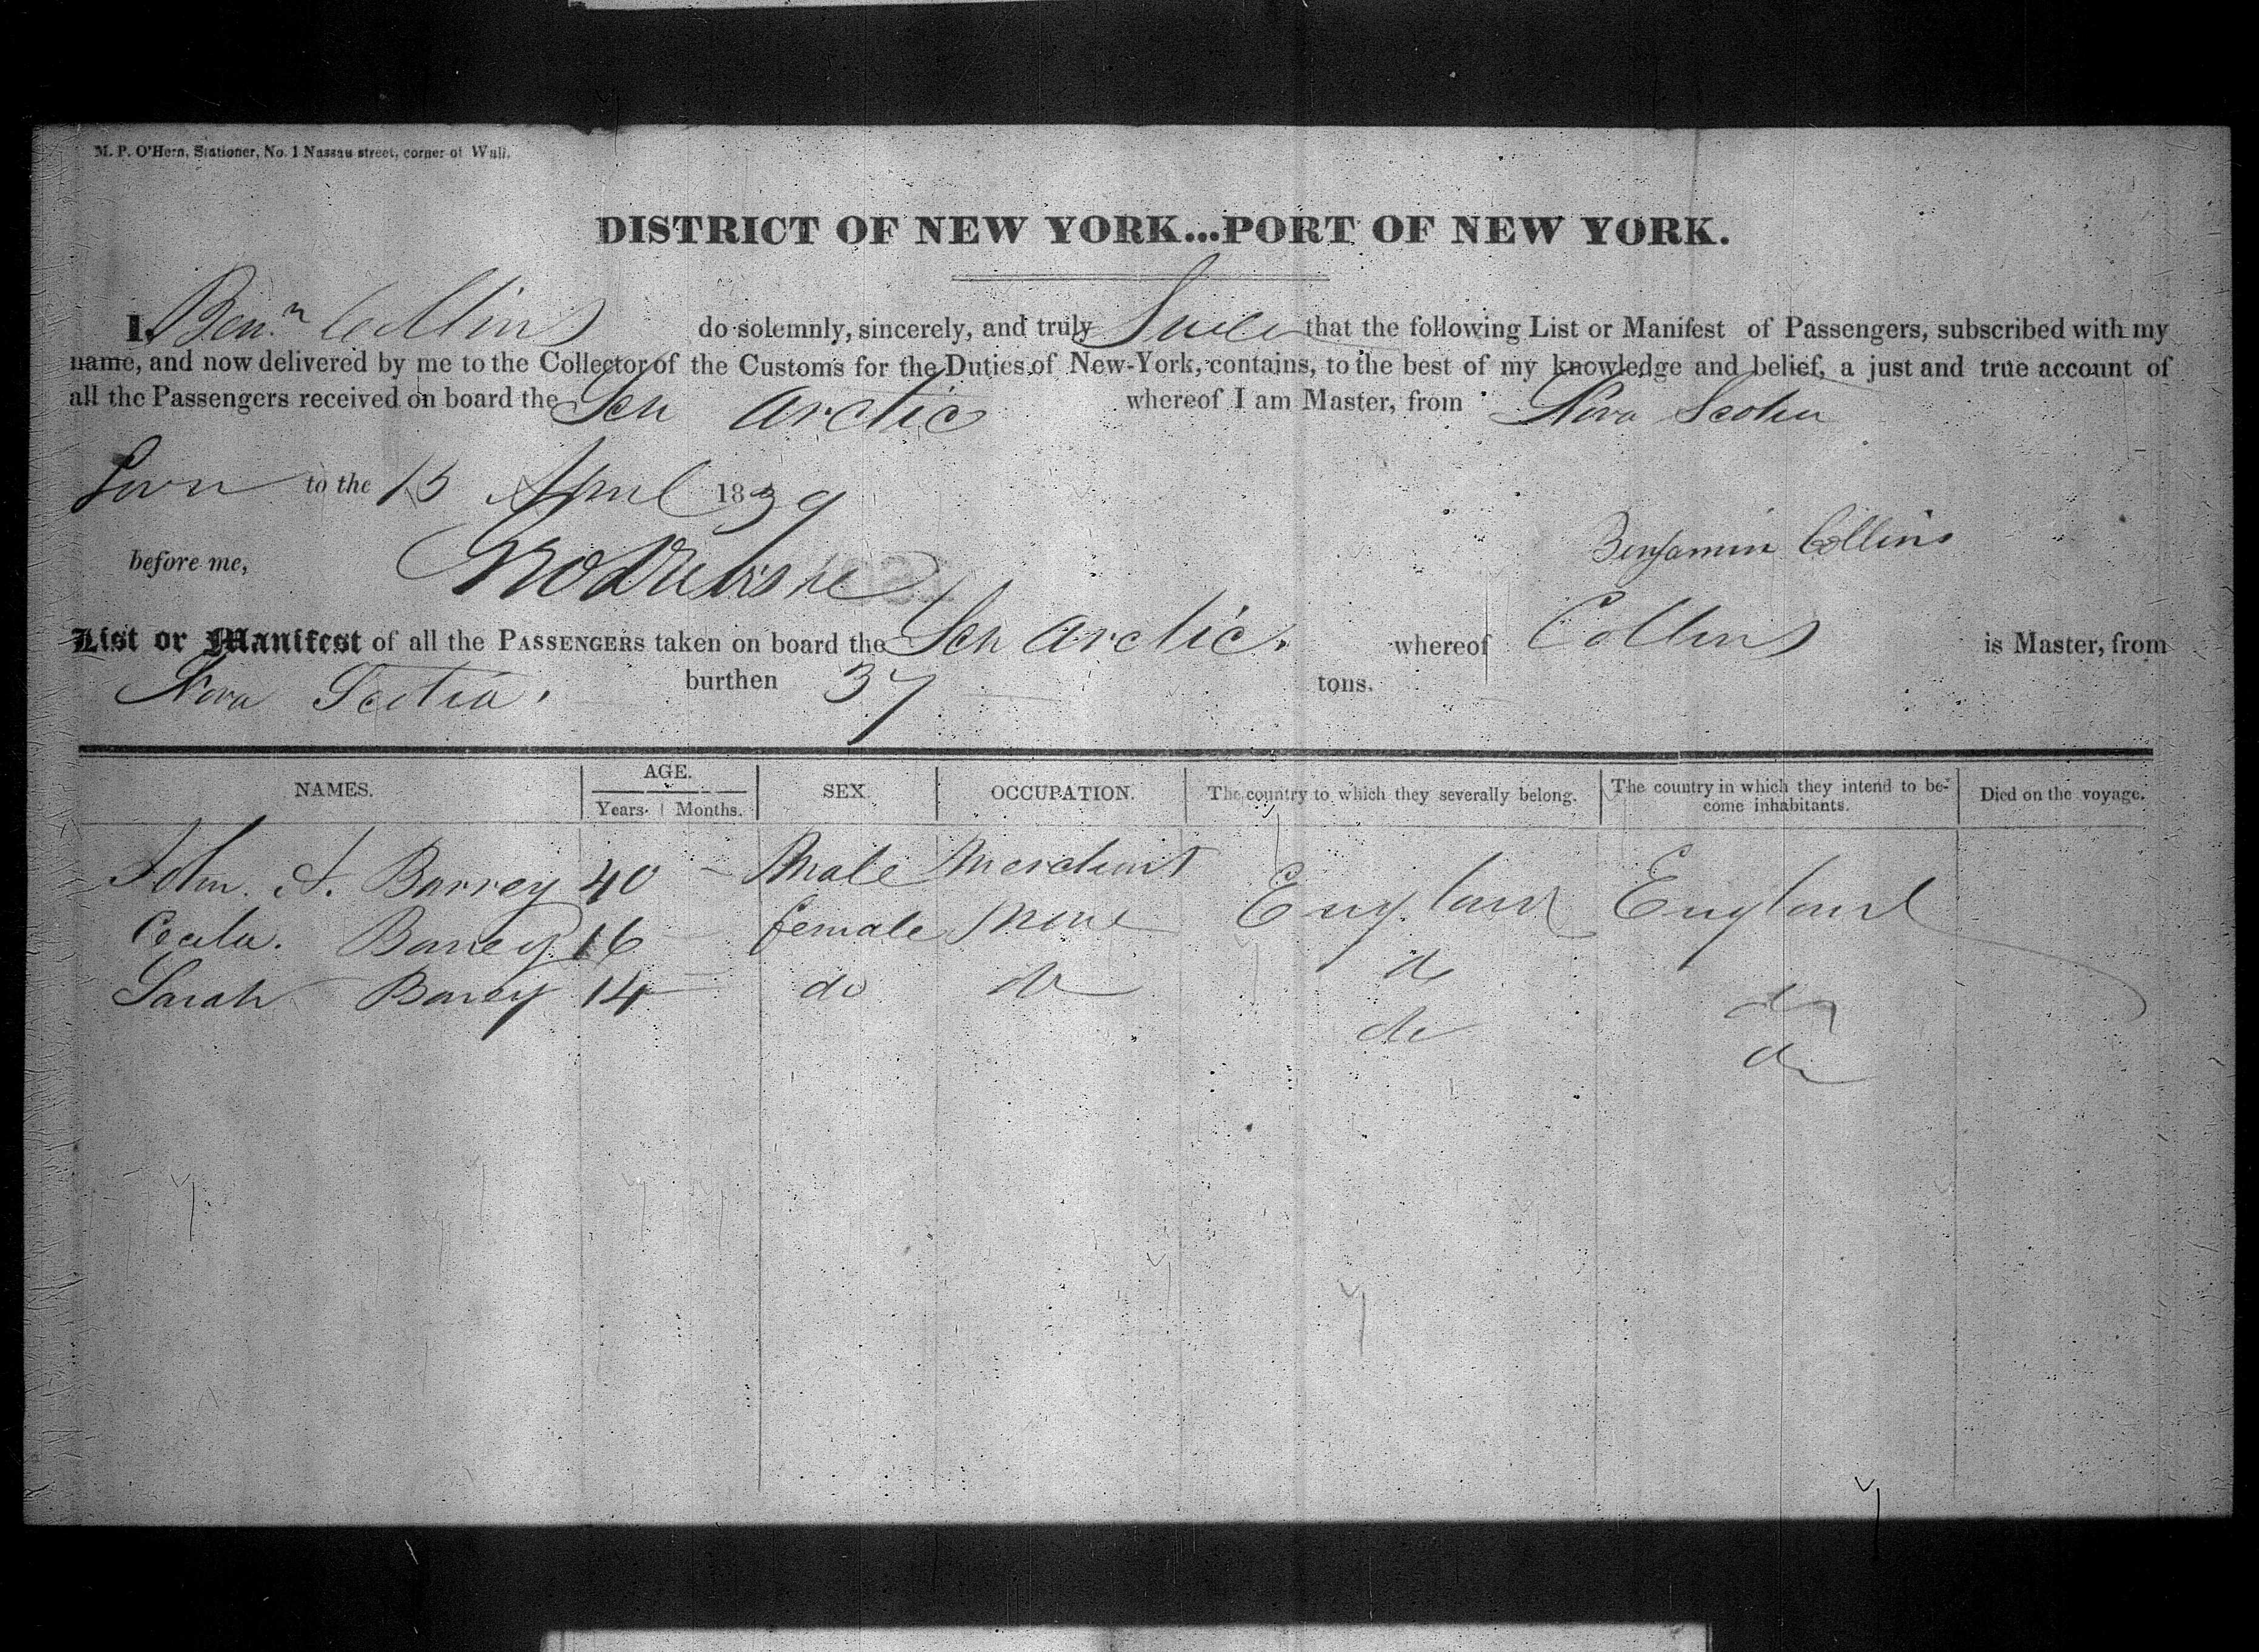 M. P. O'Hern, Stationer, No. 1 Nassau street, corner of Wall.
DISTRICT OF NEW YORK...PORT OF NEW YORK.
I, Benn Collins do solemnly, sincerely, and truly that the following List or Manifest of Passengers, subscribed with my
name, and now delivered by me to the Collector of the Customs for the Duties of New-York, contains, to the best of my knowledge and belief, a just and true account of
all the Passengers received on board the Sch Arctic whereof I am Master, from Nova Scotia
to the 15 April 1839
Benjamin Collins
before me,
List or Manifest of all the PASSENGERS taken on board the Sch Arctic. whereof Collins is Master, from
Nova Scotia. burthen 37 tons.
NAMES. AGE. SEX. OCCUPATION. The country to which they severally belong. The country in which they intend to be- Died on the voyage.
Years. Months. come inhabitants.
John A. Barrey 40 - Male Merchant England England
Cecelia. Barrey 16 female None do do
Sarah Barrey 14 do do do do